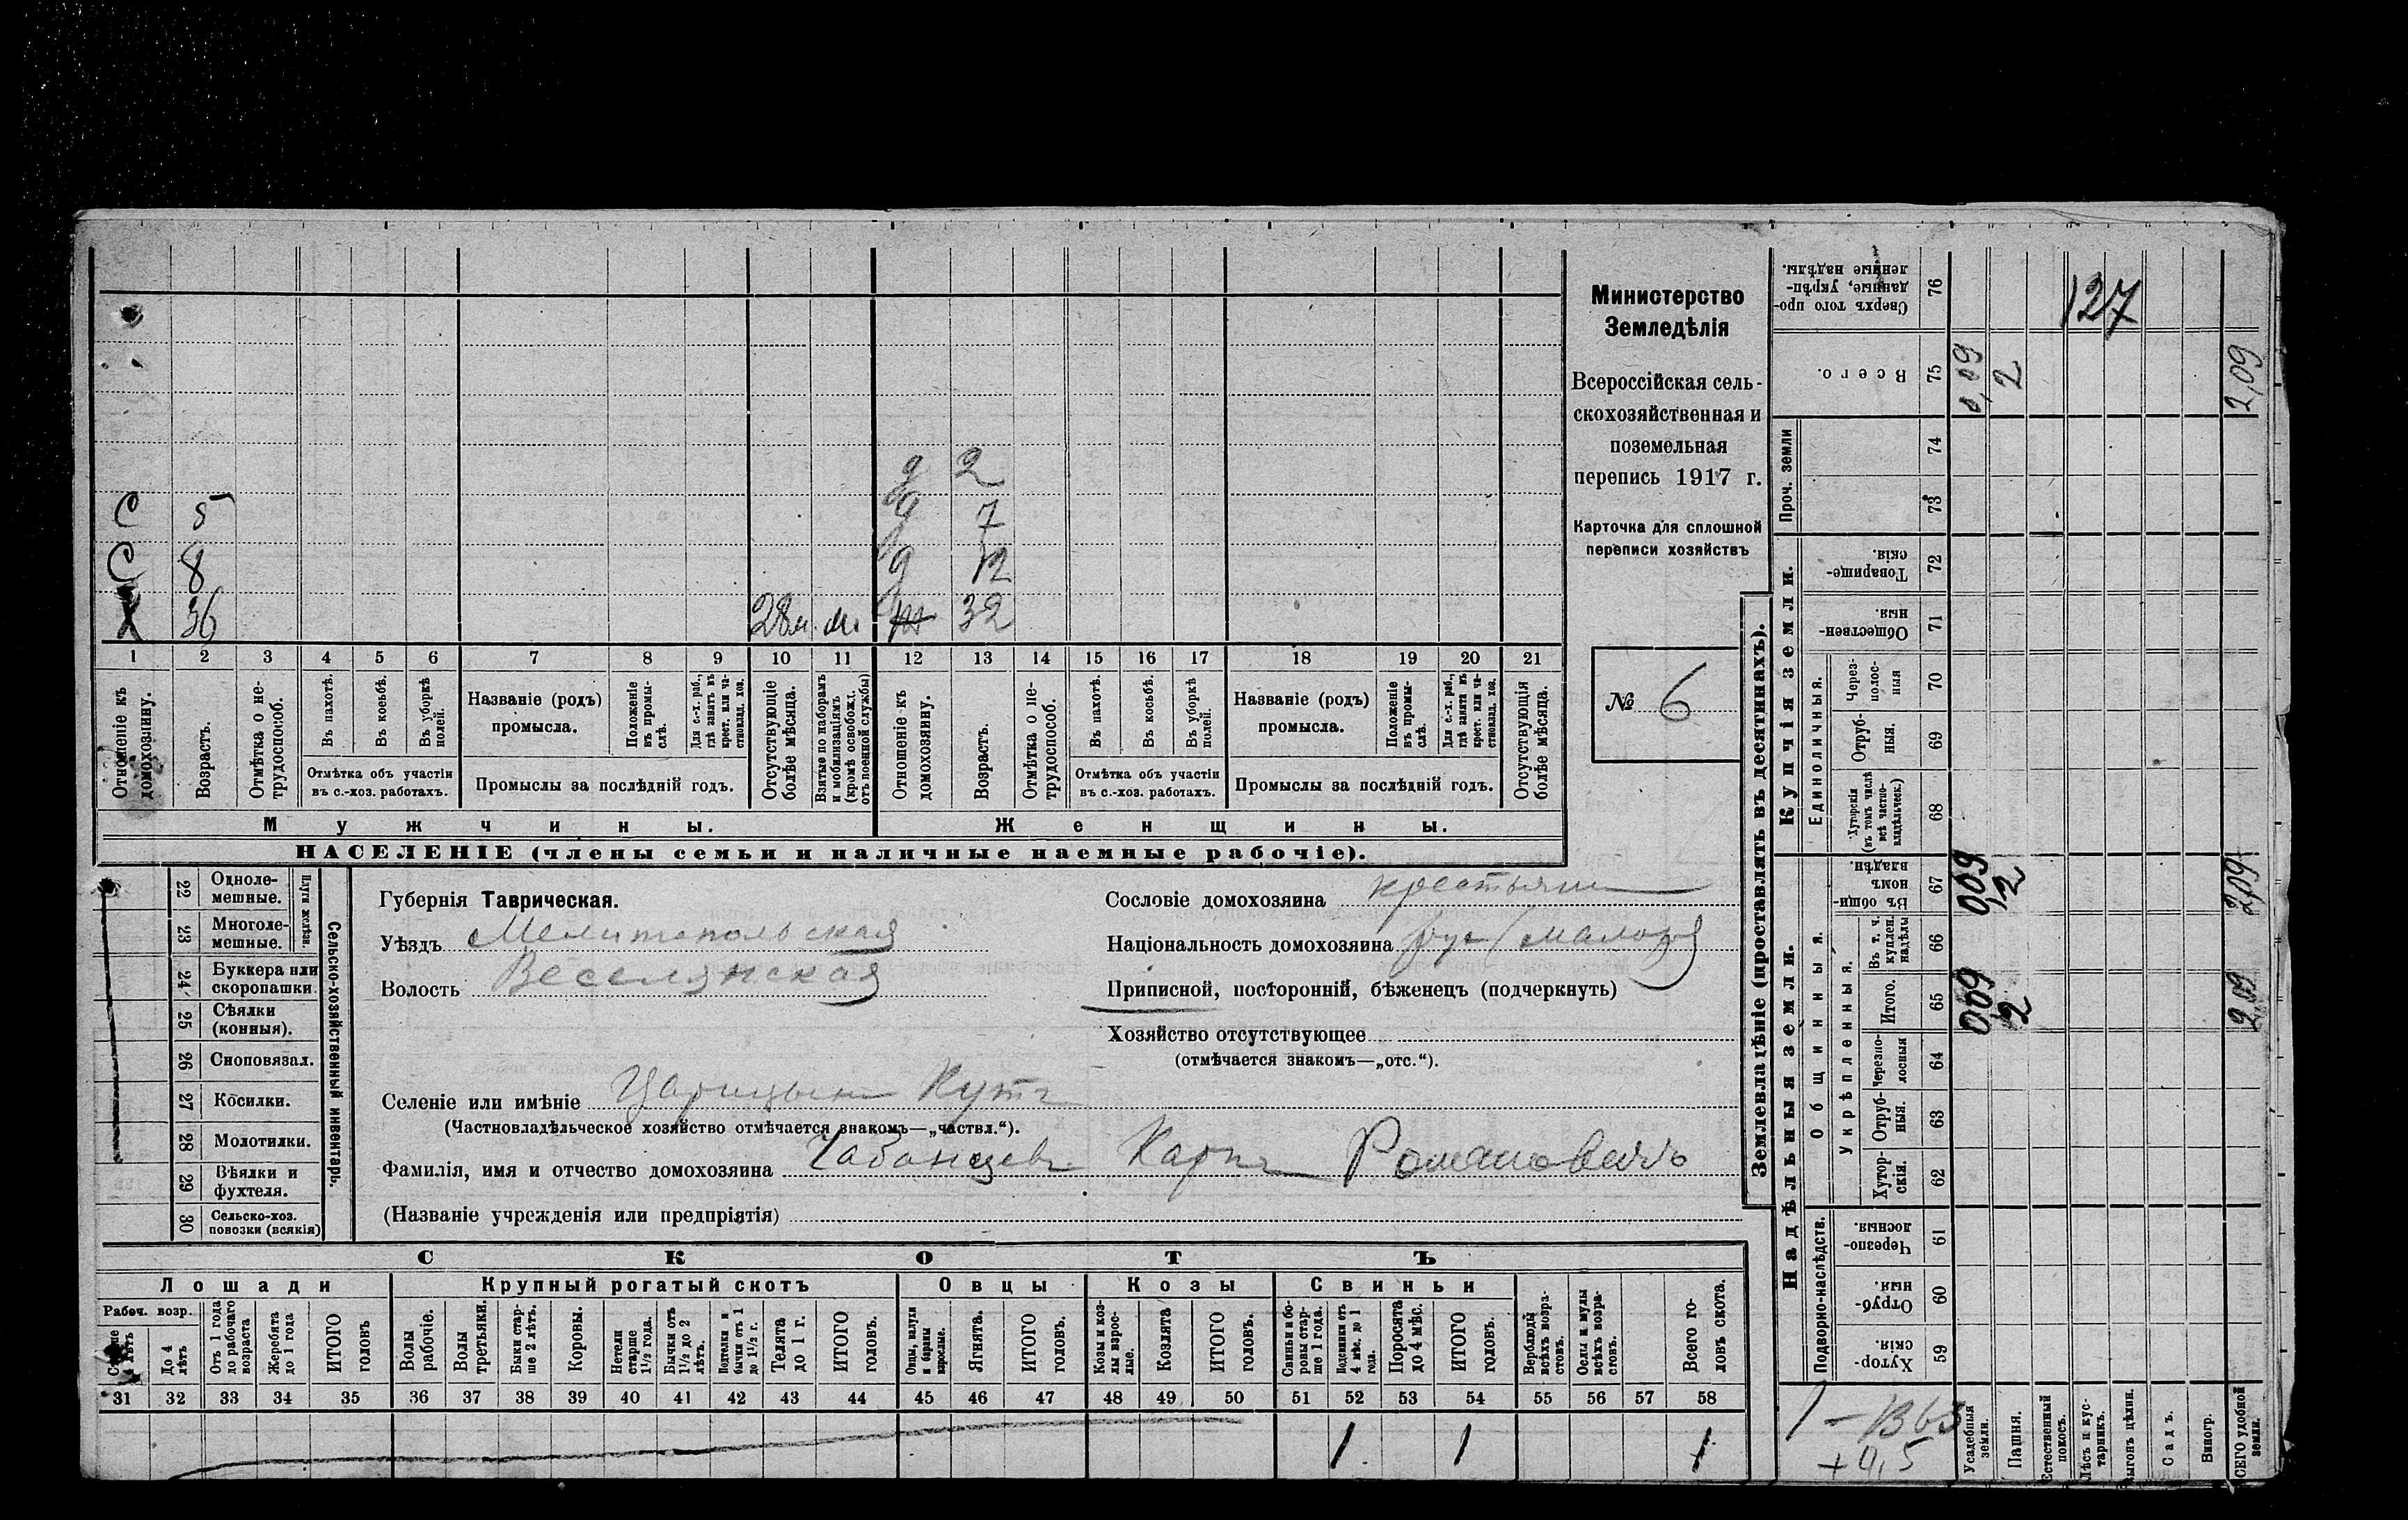 Министерство
Земледѣлія
Всероссійская сель-
скохозяйственная и
поземельная
перепись 1917 г.
Карточка для сплошной
переписи хозяйствъ
№ 6
д 2
С 5 д 7
С 8 д 12
Х 36 28 м. м. 32
1 2 3 4 5 6 7 8 9 10 11 12 13 14 15 16 17 18 19 20 21
Отношеніе къ домохозяину.
Возрастъ.
Отмѣтка о не-трудоспособ.
Въ пахотѣ.
Въ косьбѣ.
Въ уборкѣ полей.
Отмѣтка объ участіи въ с.-хоз. работахъ.
Названіе (родъ) промысла.
Положеніе въ промы-слѣ.
Для с.-х. раб., гдѣ занятъ въ крест. или ча-стновлад. хоз.
Промыслы за послѣдній годъ.
Отсутствующіе болѣе мѣсяца.
Взятые по наборамъ и мобилизаціямъ (кромѣ освобожд. отъ военной службы)
Отношеніе къ домохозяину.
Возрастъ.
Отмѣтка о не-трудоспособ.
Въ пахотѣ.
Въ косьбѣ.
Въ уборкѣ полей.
Отмѣтка объ участіи въ с.-хоз. работахъ.
Названіе (родъ) промысла.
Положеніе въ промы-слѣ.
Для с.-х. раб., гдѣ занята въ крест. или ча-стновлад. хоз.
Промыслы за послѣдній годъ.
Отсутствующія болѣе мѣсяца.
Мужчины. Женщины.
НАСЕЛЕНІЕ (члены семьи и наличные наемные рабочіе).
Сельско-хозяйственный инвентарь.
Плуги желѣзн.
22 Одноле-мешные.
23 Многоле-мешные.
24 Буккера или скоропашки.
25 Сѣялки (конныя).
26 Сноповязал.
27 Косилки.
28 Молотилки.
29 Вѣялки и фухтеля.
30 Сельско-хоз. повозки (всякія)
Губернія Таврическая.
Уѣздъ Мелитопольская
Волость Веселянская
Сословіе домохозяина крестьянин
Національность домохозяина рус (малор)
Приписной, посторонній, бѣженецъ (подчеркнуть)
Хозяйство отсутствующее
(отмѣчается знакомъ—„отс.“).
Селеніе или имѣніе Царицын Кутъ
(Частновладѣльческое хозяйство отмѣчается знакомъ—„частвл.“).
Фамилія, имя и отчество домохозяина Чабанцевъ Карпъ Романовичъ
(Названіе учрежденія или предпріятія)
СКОТЪ
Лошади Крупный рогатый скотъ Овцы Козы Свиньи
Рабоч. возр.
До 4 лѣтъ
Отъ 1 года до рабочаго возраста
Жеребята до 1 года
ИТОГО головъ
Волы рабочіе.
Волы третьяки.
Быки стар-ше 2 лѣтъ.
Коровы.
Нетели старше 1½ года.
Бычки отъ 1½ до 2 лѣтъ.
Подтелки и бычки отъ 1 до 1½ г.
Телята до 1 г.
ИТОГО головъ.
Овцы, валухи и бараны взрослые.
Ягнята.
ИТОГО головъ.
Козы и коз-лы взрос-лые.
Козлята
ИТОГО головъ.
Свиньи и бо-ровы стар-ше 1 года.
Подсвинки отъ 4 мѣс. до 1 года.
Поросята до 4 мѣс.
ИТОГО головъ.
Верблюды всѣхъ возра-стовъ.
Ослы и мулы всѣхъ возра-стовъ.
Всего го-ловъ скота.
31 32 33 34 35 36 37 38 39 40 41 42 43 44 45 46 47 48 49 50 51 52 53 54 55 56 57 58
1 1 1
Землевладѣніе (проставлять въ десятинахъ).
Надѣльныя земли. Купчія земли. Проч. земли
Подворно-наслѣдств.
Общинныя.
Укрѣпленныя.
Единоличныя.
Хутор-скія. 59
Отруб-ныя. 60
Черезпо-лосныя 61
Хутор-скія. 62
Отруб-ныя. 63
Черезпо-лосныя 64
Итого. 65
Въ т. ч. куплен. надѣлы 66
Въ общи-номъ владѣн. 67
Хуторскія (въ томъ числѣ всѣ частно-владѣльческ.) 68
Отруб-ныя. 69
Через-полос-ныя 70
Обществен-ныя. 71
Товарище-скія. 72
73
74
Всего. 75
Сверхъ того про-данные, укрѣп-ленные надѣлы. 76
Усадебныя земли. 0,09 0,09 0,09
Пашня. 2 2 2
Естественный покосъ.
Лѣсъ и кус-тарникъ.
Выгонъ цѣлин.
Садъ.
Виногр.
ВСЕГО удобной земли. 2,09 2,09 2,09
127